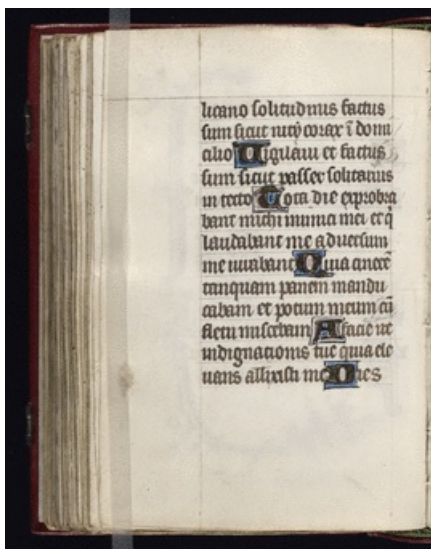 licano solitudinis factus
sum sicut nicticorax ī domi
cilio Vigilaui et factus
sum sicut passer solitarius
in tecto Tota die exprobra
bant michi inimici mei et q̄
laudabant me aduersum
me iurabant Quia cinerē
tanquam panem mandu
cabam et potum meum cū
fletu miscebam A facie ire
indignationis tue quia ele
uans allisisti me Dies